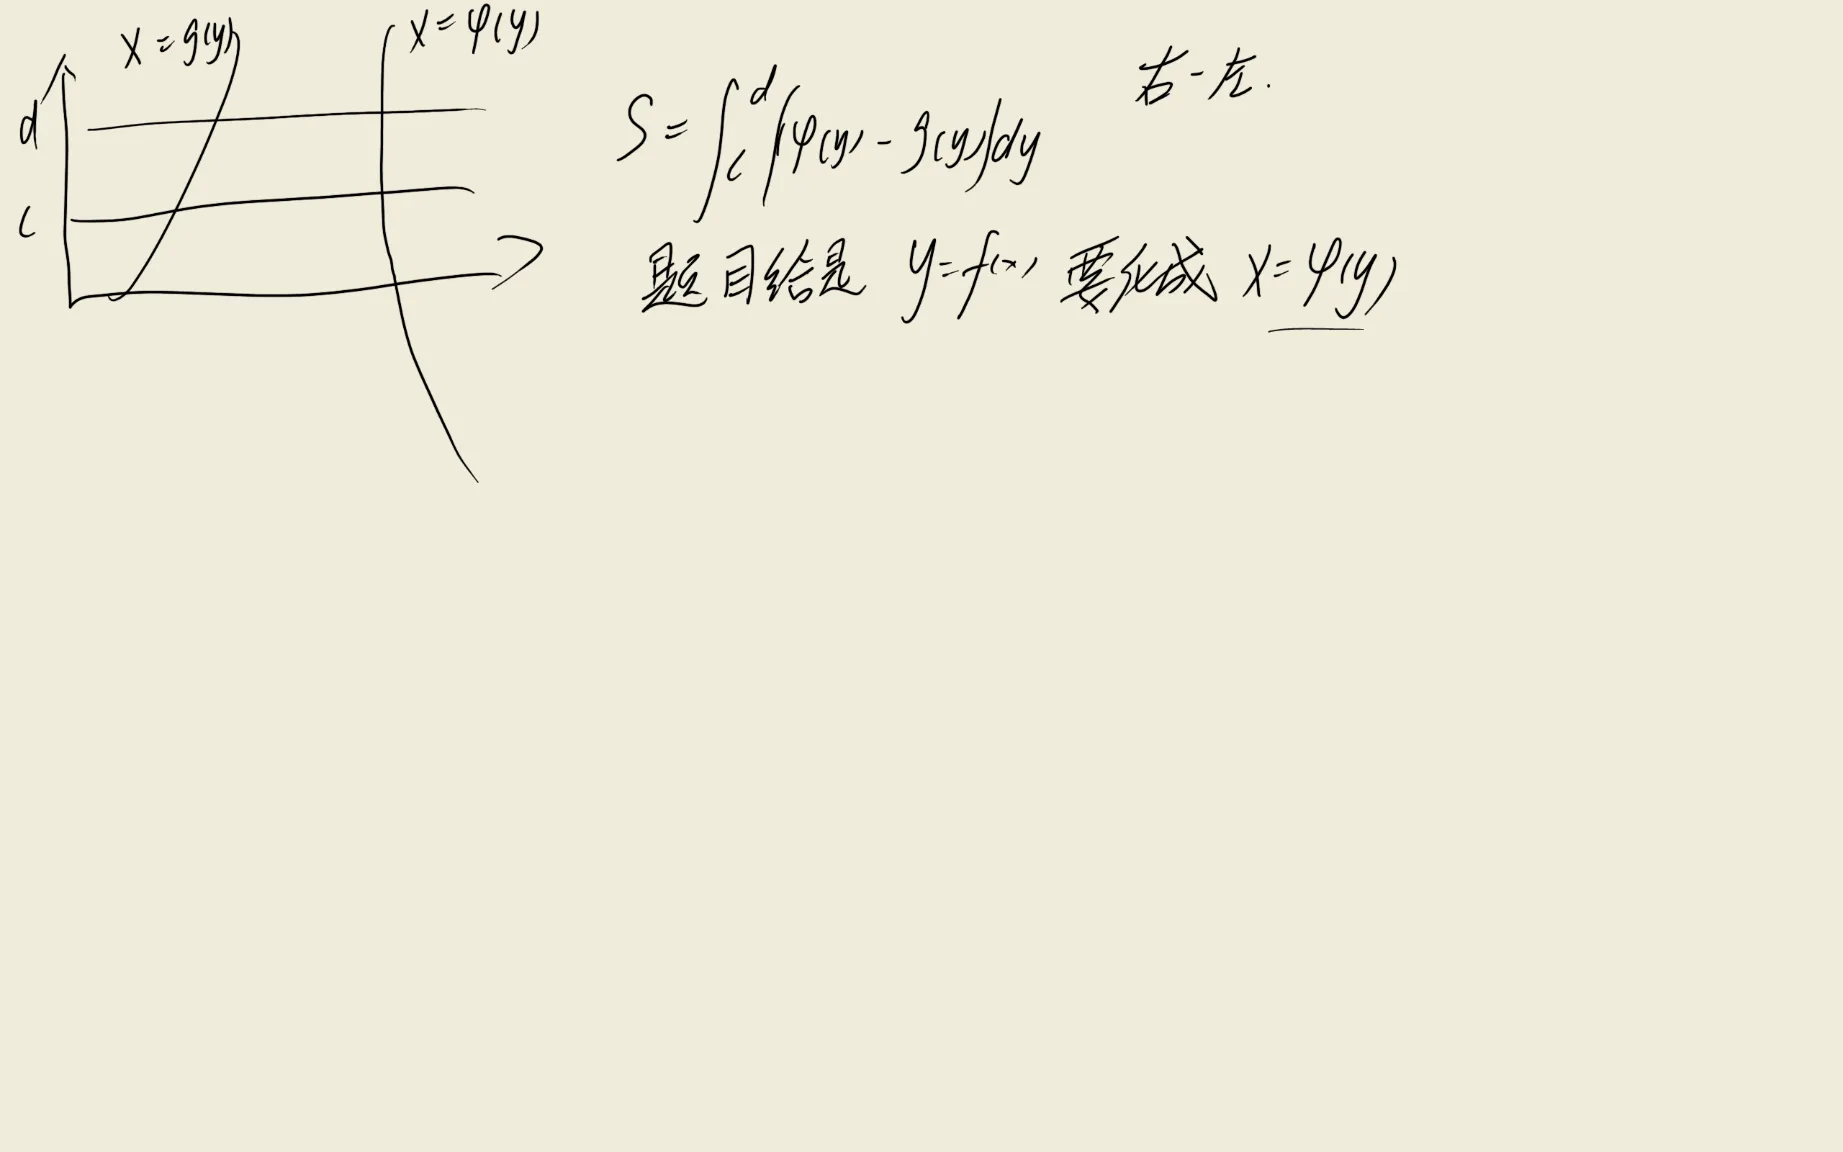 x = g(y)
x = φ(y)
d
c
S = ∫_c^d |φ(y) - g(y)| dy
右 - 左.
题目给是 y = f(x) 要化成 x = φ(y)